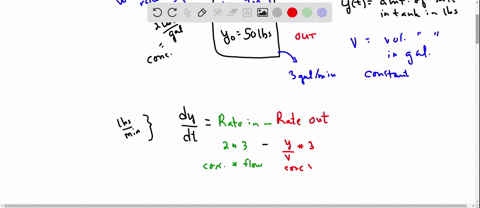 2 lbs/gal
"
conc.
y₀ = 50 lbs
OUT
3 gal/min
y(t) = amt. of
in tank in lbs
V = vol. " "
in gal.
constant
lbs/min } dy/dt = Rate in - Rate out
2 * 3 - y/V * 3
conc. * flow conc